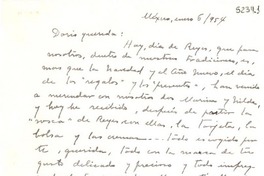 México, enero 6/954
Doris querida:
Hoy, día de Reyes, que para
nosotros, dentro de nuestras tradiciones, es
mas que la Navidad y el Año Nuevo, el día
de los "regalos" y los presentes, han venido
a merendar con nosotros dos
y hoy he recibido, después de partir la
"rosca" de Reyes con ellas, la
bolsa y los
te, querida, todo con la marca de tu
gusto delicado y precioso y todo